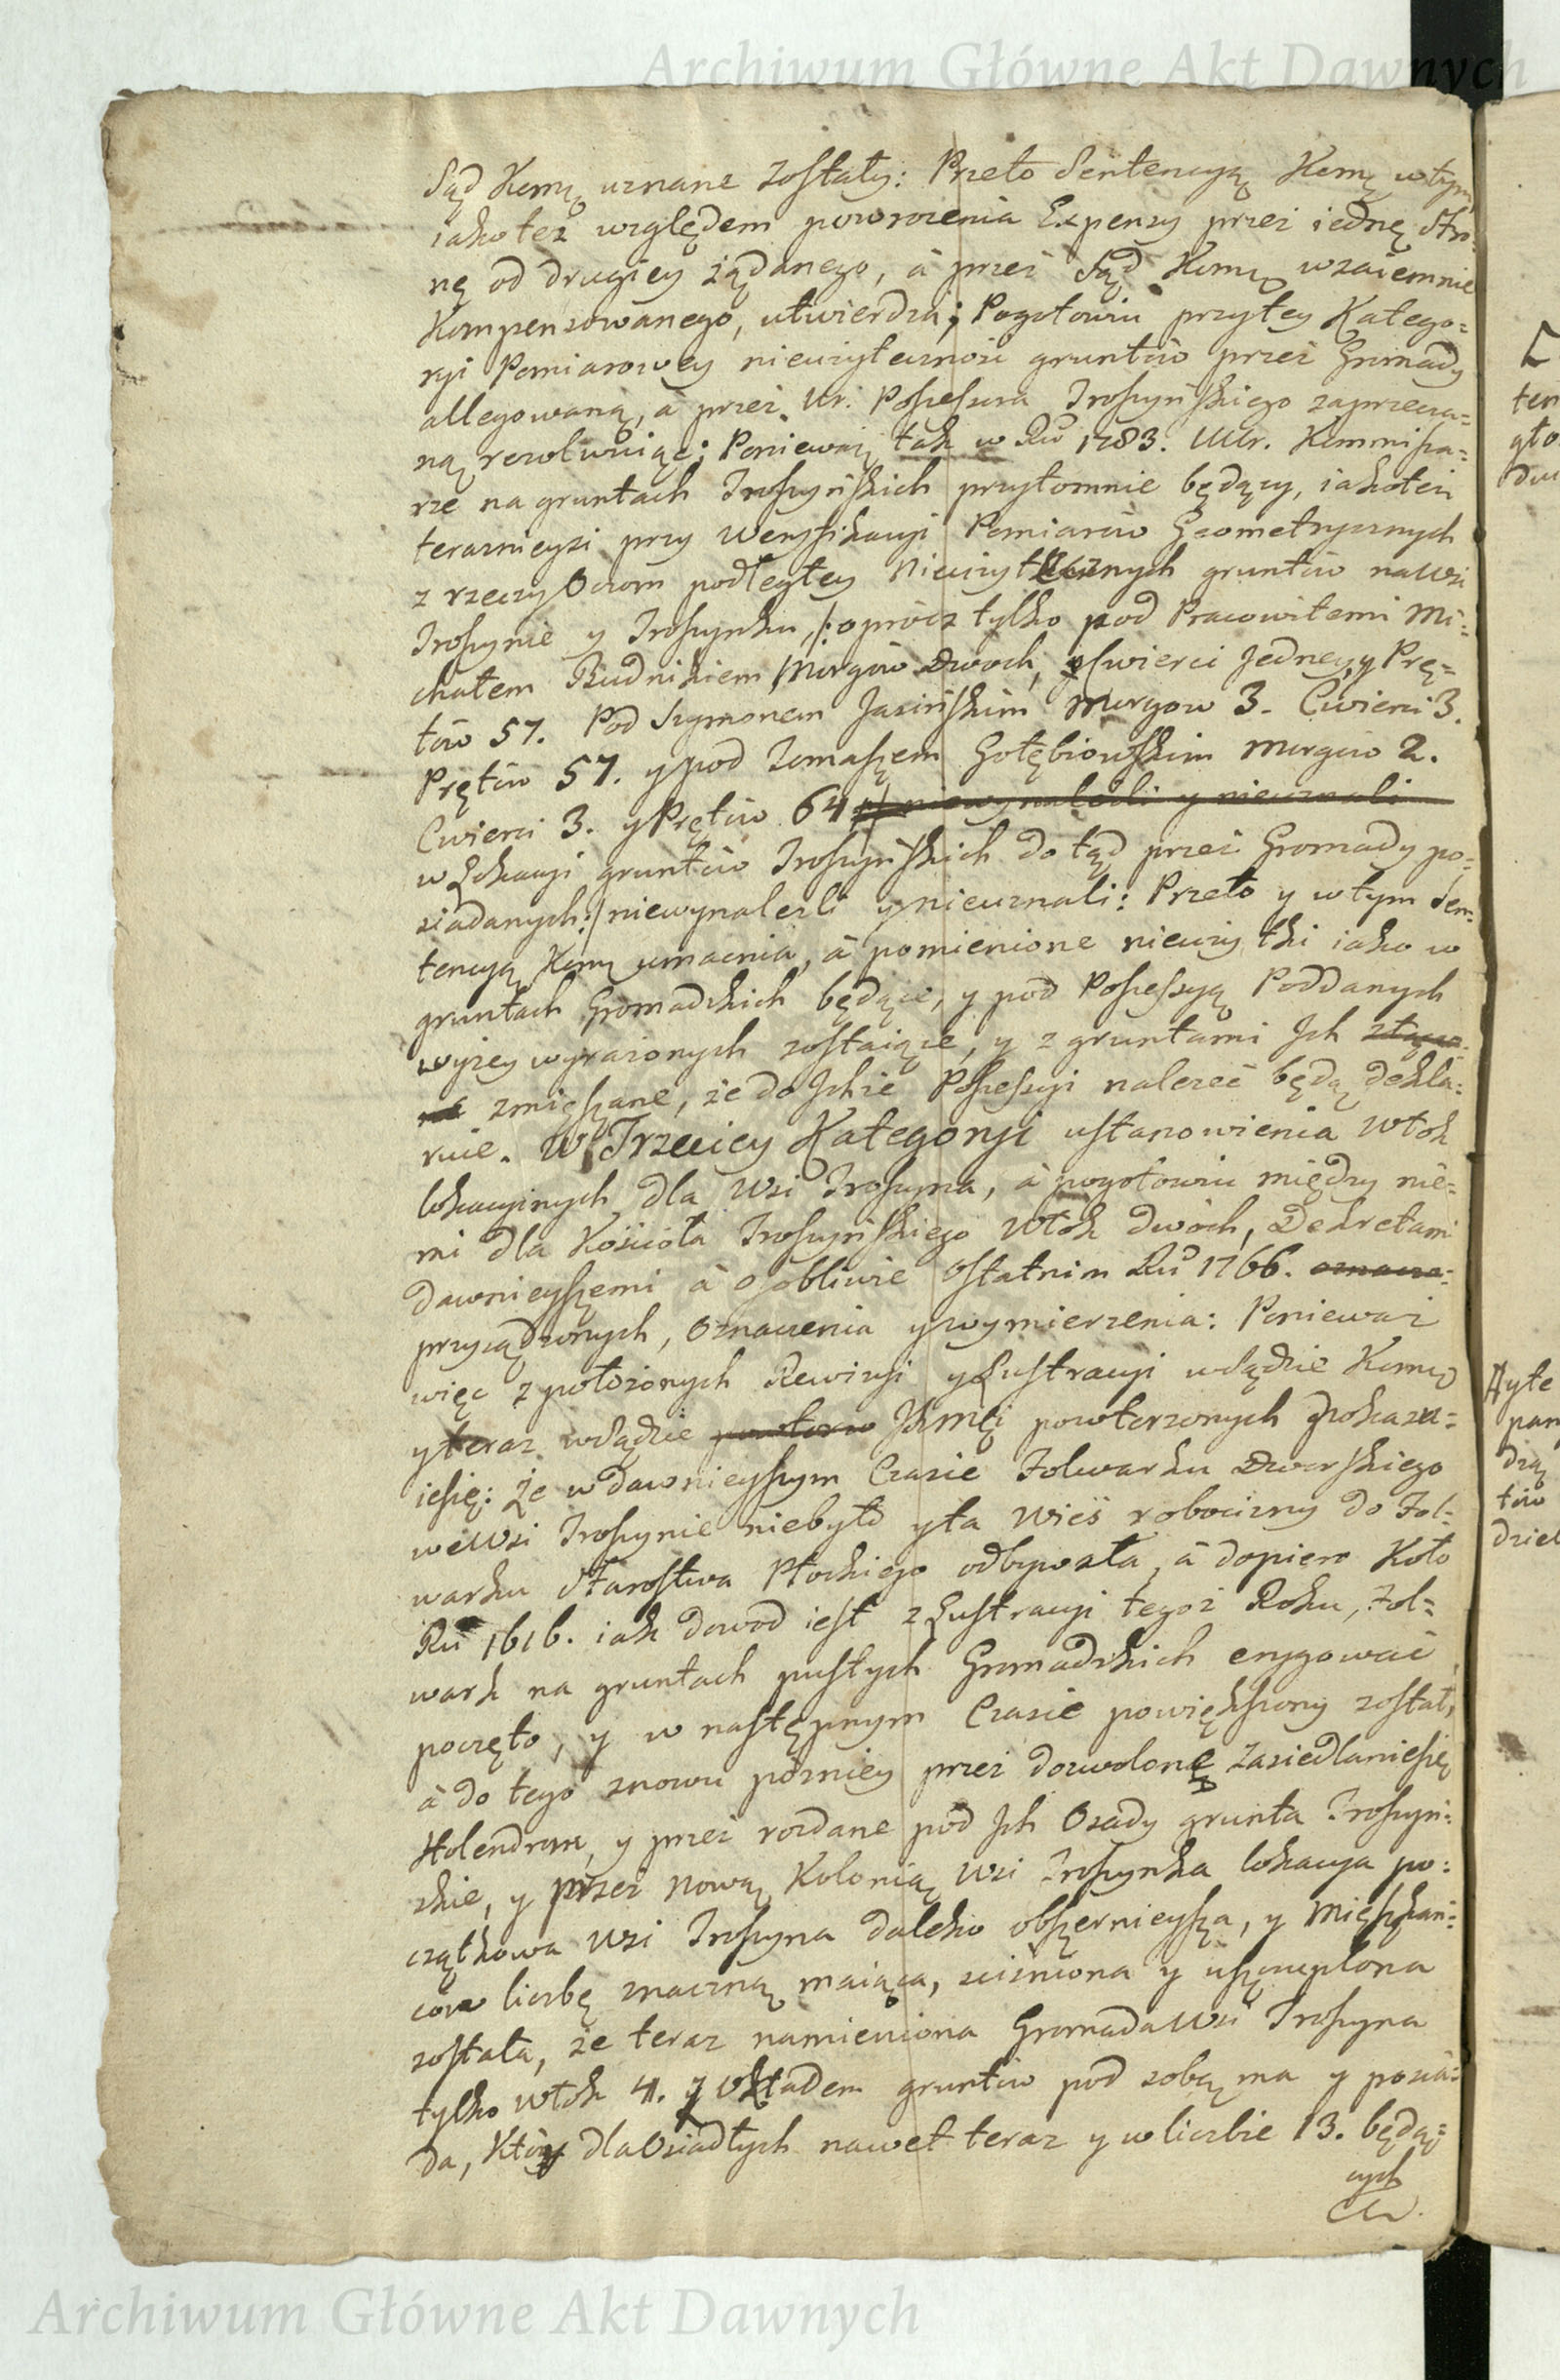 Archiwum Główne Akt Dawnych
Sąd Komẏ uznane zostały: Przeto Sentencyą Komẏ w tym,
iako też względem powrocenia Expensy przez iednę Stro-
nę od drugiey żądanego, à przez Sąd Komẏ wzaiemnie
Kompensowanego, utwierdza; Pogotowiu przytey Katego=
ryi Pomiarowey nieużyteczność gruntów przez Gromady
allegowaną, à przez Ur. Possessora Troszyńskiego zaprzecza=
ną rezolwuiąc; Ponieważ tak w Ru 1783. Ur. Kommissa=
rze na gruntach Troszyńskich przytomnie będący, iakoteż
teraznieysi przy weryfikacyi Pomiarów Geometrycznych
z rzeczy Oczom podległey Nieużytecznych gruntów na wsi
Troszynie y Troszynku, /: oprócz tylko pod Pracowitemi Mi=
chałem Budnikiem Morgów Dwoch, Cwierci Jedney, y Prę=
tów 57. Pod Szymonem Jasińskim Morgow 3. Cwierci 3.
Prętów 57. y pod Tomaszem Gołębiowskim Morgów 2.
Cwierci 3. y Prętów 64 niewynalezli y nieuznali
w Lokacyi gruntów Troszyńskich dotąd przez Gromady po=
siadanych :/ niewynalezli y nieuznali: Przeto y w tym Sen=
tencyą Komẏ umacnia, à pomienione nieużytki iako w
gruntach Gromadzkich będące, y pod Possessyą Poddanych
wyżey wyrażonych zostaiące, y z gruntami Jch złącz=
ne zmięszane, że do Jchże Possessyi należeć będą dekla=
ruie. W Trzeciey Kategoryi ustanowienia Włók
lokacyinych dla Wsi Troszyna, à pogotowiu między nie=
mi dla Kościoła Troszyńskiego Włók dwóch, Dekretami
dawnieyszemi à osobliwie Ostatnim Ru 1766. oznacze=
przysądzonych, Oznaczenia y wymierzenia: Ponieważ
więc z położonych Rewizyi y Lustracyi w Sądzie Komẏ
y teraz w Sądzie powtorzo JKMci powtorzonych pokazu=
ie się: Że w dawnieyszym Czasie Folwarku Dworskiego
we Wsi Troszynie niebyło y ta Wieś robocizny do Fol=
warku Starostwa Płockiego odbywała, à dopiero Koło
Ru 1616. iak dowod iest z Lustracyi tegoż Roku, Fol=
wark na gruntach pustych Gromadzkich erygować
poczęto, y w następnym Czasie powiększony został,
à do tego znowu pózniey przez dozwolonę zasiedlanie się
Holendrom, y przez rozdane pod Jch Osady grunta Troszyń=
skie, y przez Nową Kolonią Wsi Troszynka lokacya po=
czątkowa Wsi Troszyna daleko obszernieysza, y Mięszkań=
cow liczbę znaczną maiąca, sciśniona y uszczuplona
została, że teraz namieniona Gromada Wsi Troszyna
tylko Włók 4. z Okładem gruntów pod sobą ma y posia=
da, Który dla Osiadłych nawet teraz y w liczbie 13. będą=
cych
Ł
ten
gło
du
Ayte
pan
drą
tów
dziel
Archiwum Główne Akt Dawnych